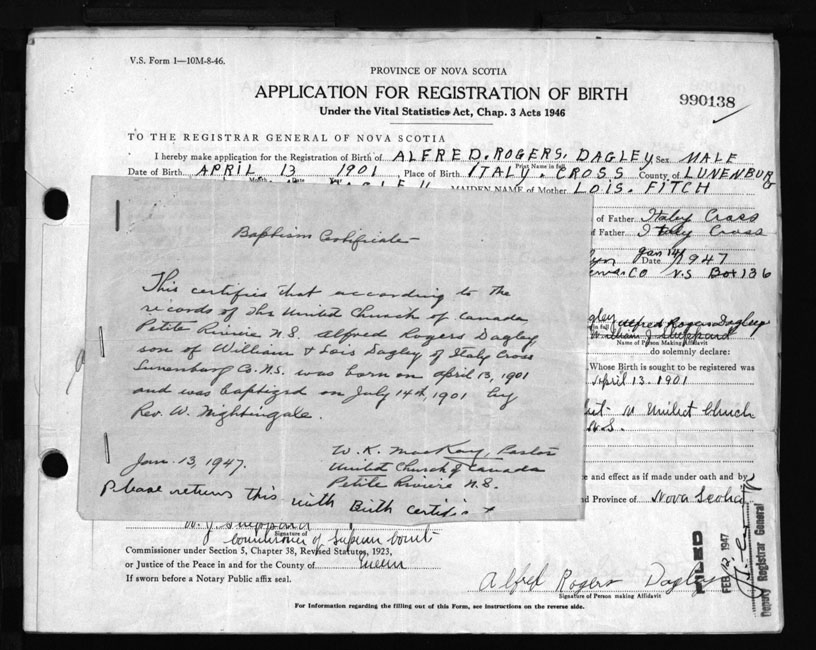 V.S. Form 1—10M-8-46.
PROVINCE OF NOVA SCOTIA
APPLICATION FOR REGISTRATION OF BIRTH
Under the Vital Statistics Act, Chap. 3 Acts 1946
990138
TO THE REGISTRAR GENERAL OF NOVA SCOTIA
I hereby make application for the Registration of Birth of ALFRED. ROGERS. DAGLEY Sex MALE
Print Name in full
Date of Birth APRIL 13 1901 Place of Birth ITALY. CROSS County of LUNENBURG
MAIDEN NAME of Mother LOIS. FITCH
of Father Italy Cross
f Father Italy Cross
Date Jan 14 1947
Co N.S Box 136
Baptism Certificate
This certifies that according to the
records of the United Church of Canada
Petite Riviere N.S. Alfred Rogers Dagley
son of William & Lois Dagley of Italy Cross
Lunenburg Co. N.S. was born on April 13, 1901
and was baptized on July 14th 1901 by
Rev. W. Nightingale.
W. K. MacKay, Pastor
Jan. 13, 1947.
United Church of Canada
Petite Riviere N.S.
Please return this with Birth Certifi
Alfred Rogers Dagley
Name of Person Making Affidavit
do solemnly declare:
Whose Birth is sought to be registered was
April 13. 1901
Church
N.S.
ce and effect as if made under oath and by
nd Province of Nova Scotia
W. J. Sheppard
Signature of
Commissioner of Supreme Court
Commissioner under Section 5, Chapter 38, Revised Statutes, 1923,
or Justice of the Peace in and for the County of Queen
If sworn before a Notary Public affix seal.
Alfred Rogers Dagley
Signature of Person making Affidavit
FILED
FEB 12 1947
Deputy Registrar General
For Information regarding the filling out of this Form, see instructions on the reverse side.